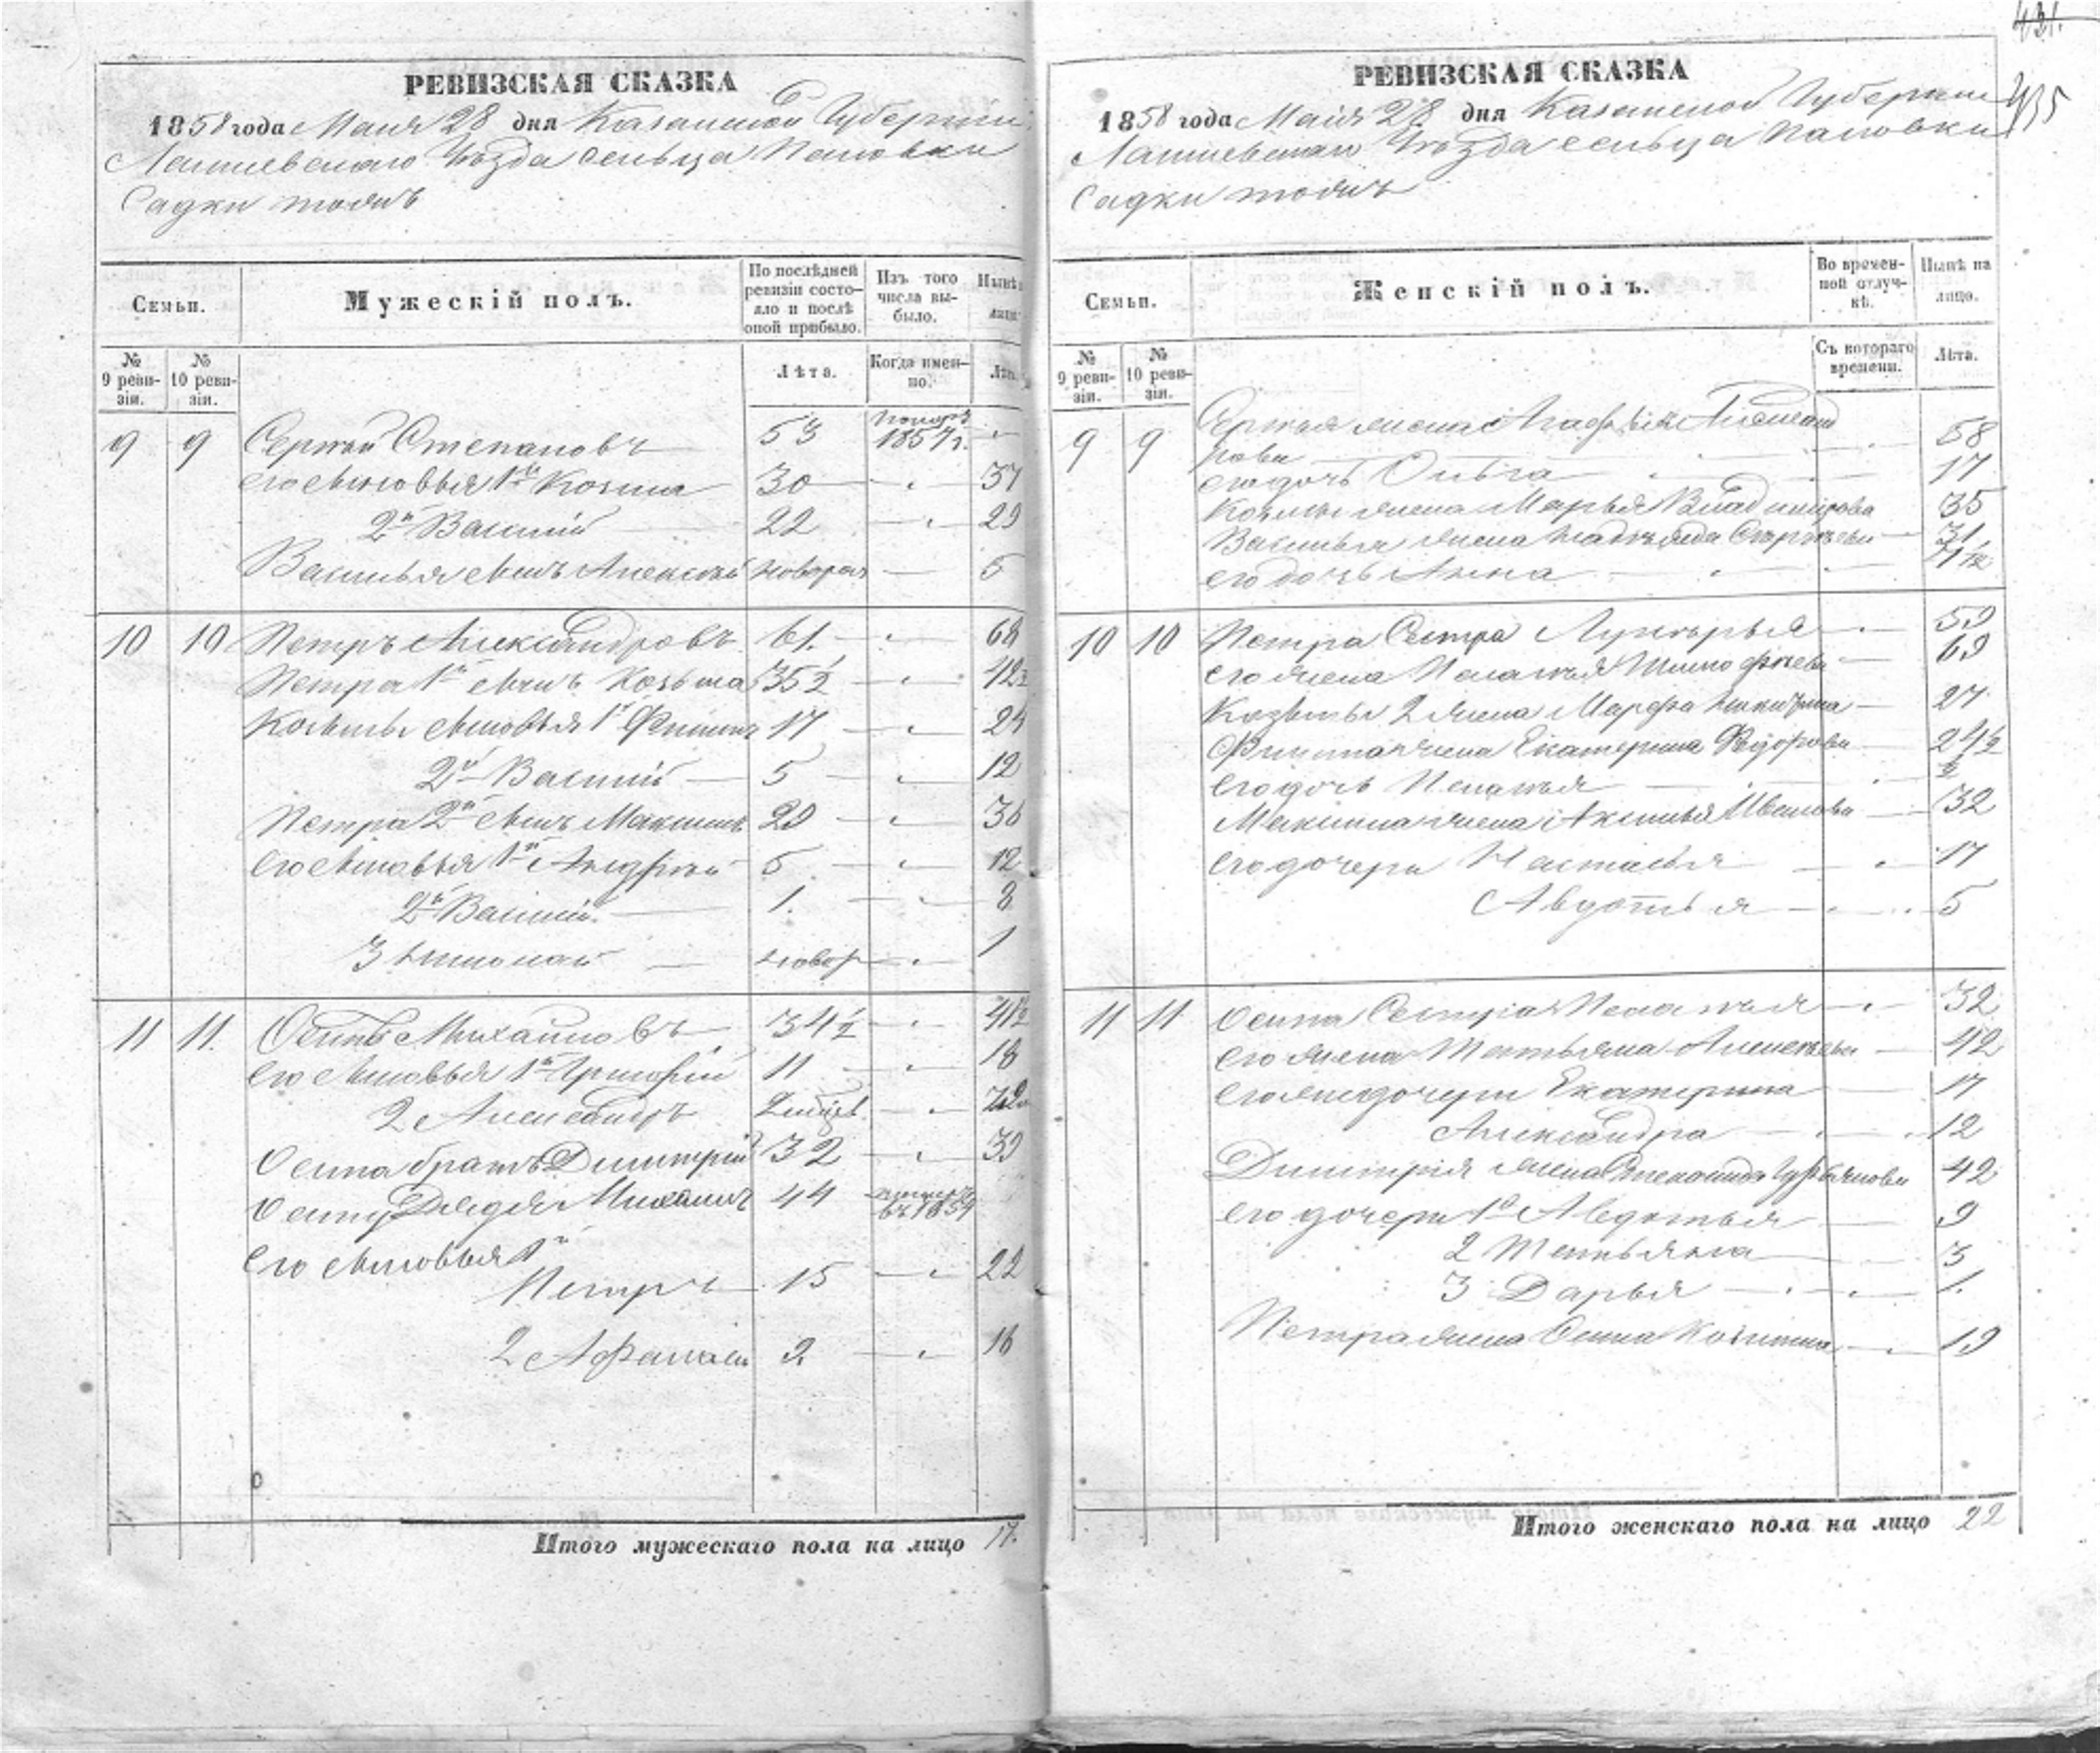 431.
435
РЕВИЗСКАЯ СКАЗКА
1858 года Маия 28 дня Казанской Губернии
Лаишевскаго Уѣзда сельца Паповки
Садки тожъ
Семьи.
Мужескій полъ.
По послѣдней ревизіи состояло и послѣ оной прибыло.
Изъ того числа выбыло.
Нынѣ лицо
№ 9 ревизіи.
№ 10 ревизіи.
Лѣта.
Когда именно.
Лѣта
9 9 Сергѣй Степановъ 53 1857 г.
его сыновья 1й Козьма 30 37
2й Василій 22 29
Василья сынъ Алексѣй новорож 5
10 10 Петръ Александровъ 61. 68
Петра 1й сынъ Козьма 35½ 42½
Козьмы сыновья 1й Филипъ 17 24
2й Василій 5 12
Петра 2й сынъ Максимъ 29 36
его сыновья 1й Андрей 5 12
2й Василій 1. 8
3 Николай новор 1
11 11. Осипъ Михайловъ 34½ 41½
его сыновья 1й Григорій 11 18
2 Александръ
Осипа братъ Димитрій 32 39
Осипа Дядя Михаилъ 44
его сыновья 1й
Петръ 15 22
2 Афанасій 2 16
Итого мужескаго пола на лицо 17.
РЕВИЗСКАЯ СКАЗКА
1858 года Маия 28 дня Казанской Губернии
Лаишевскаго Уѣзда сельца Паповки
Садки тожъ
Семьи.
Женскій полъ.
Во временной отлучкѣ.
Нынѣ на лицо.
№ 9 ревизіи.
№ 10 ревизіи.
Съ котораго времени.
Лѣта.
9 9 Сергѣя жена Агафья Александ
рова 58
его дочь Ольга 17
Козьмы жена Марья Владимірова 35
Василья жена Надежда Сергѣева 31
его дочь Анна
10 10 Петра Сестра Лукерья 59
его жена Пелагея Тимофѣева 69
Козьмы 2 жена Марфа Никитина 27
Филипа жена Екатерина Федорова 24½
его дочь Пелагея ½
Максима жена Аксинья Иванова 32
его дочери Настасья 17
Авдотья 5
11 11 Осипа Сестра Пелагея 32
его жена Татьяна Алексѣева 42
его дочери Екатерина 17
Александра 12
Димитрія жена 42
его дочери 1я Авдотья 9
2 Татьяна 3
3 Дарья 1.
Петра жена Козьмина 19
Итого женскаго пола на лицо 22